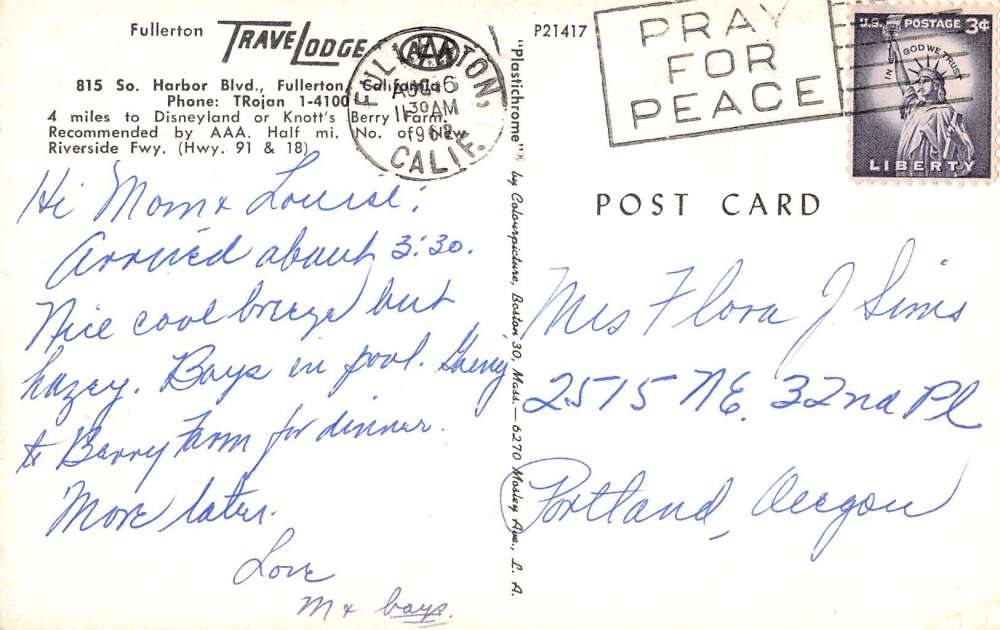 Fullerton TRAVELODGE
815 So. Harbor Blvd., Fullerton, California
Phone: TRojan 1-4100
4 miles to Disneyland or Knott's Berry Farm.
Recommended by AAA. Half mi. No. of New
Riverside Fwy. (Hwy. 91 & 18)
AAA
FULLERTON,
AUG 6
11 30 AM
CALIF.
P21417
PRAY
FOR
PEACE
U.S. POSTAGE 3¢
IN GOD WE TRUST
LIBERTY
POST CARD
"Plastichrome"® by Colourpicture, Boston 30, Mass.—6270 Mosley Ave., L. A.
Hi Mom & Louise;
Arrived about 3:30.
Nice cool breeze but
hazey. Boys in pool. Going
to Berry Farm for dinner.
More later.
Love
M & boys.
Mrs Flora J Sims
2515 NE. 32nd Pl
Portland, Oregon